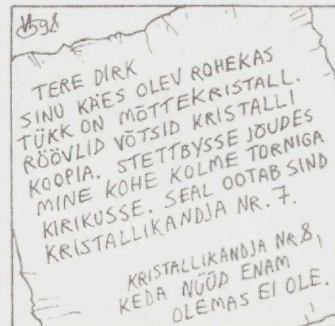 598
TERE DIRK
SINU KÄES OLEV ROHEKAS
TÜKK ON MÕTTEKRISTALL.
RÖÖVLID VÕTSID KRISTALLI
KOOPIA. STETTBYSSE JÕUDES
MINE KOHE KOLME TORNIGA
KIRIKUSSE. SEAL OOTAB SIND
KRISTALLIKANDJA NR. 7.
KRISTALLIKANDJA NR.8,
KEDA NÜÜD ENAM
OLEMAS EI OLE.